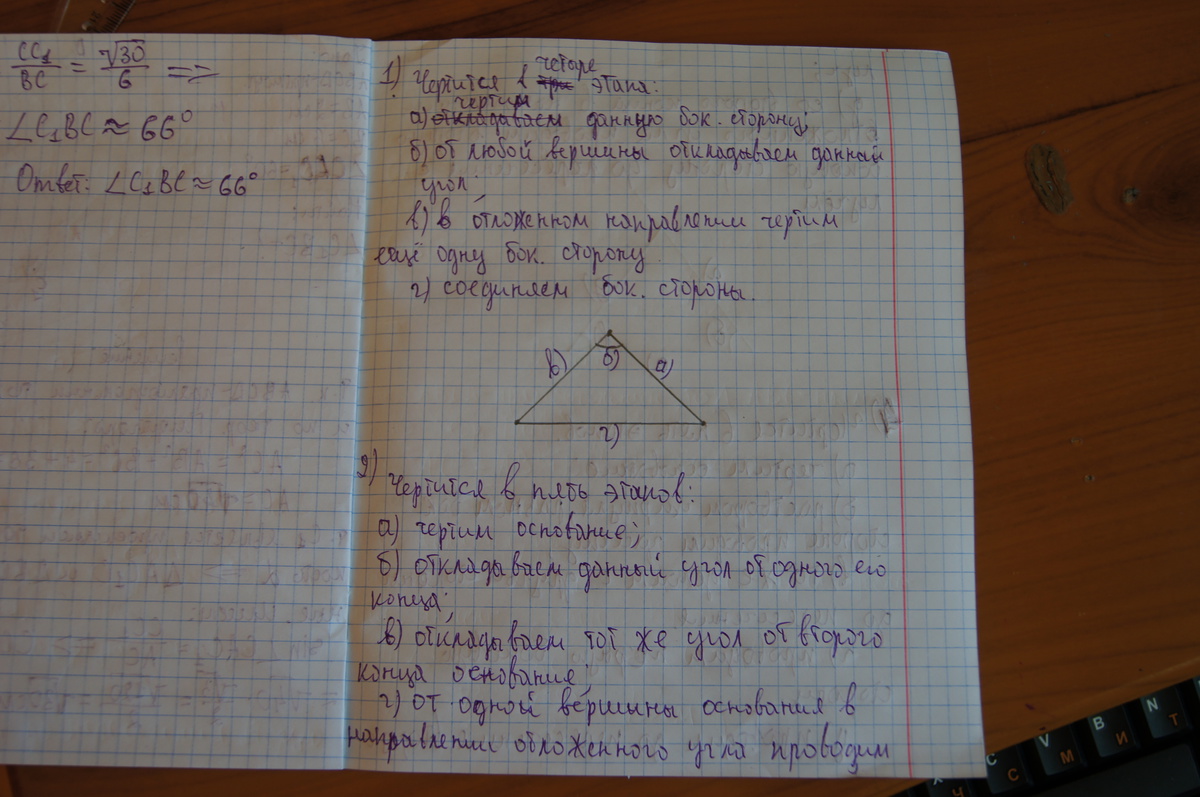 CC₁/BC = √30/6 =>
∠C₁BC ≈ 66°
Ответ: ∠C₁BC ≈ 66°
1) Чертится в четыре этапа:
чертим
а) откладываем данную бок. сторону;
б) от любой вершины откладываем данный
угол;
в) в отложенном направлении чертим
ещё одну бок. сторону
г) соединяем бок. стороны.
в) б) а)
г)
2)
Чертится в пять этапов:
а) чертим основание;
б) откладываем данный угол от одного его
конца;
в) откладываем тот же угол от второго
конца основание;
г) от одной вершины основания в
направлении отложенного угла проводим
V B N
С М И Т